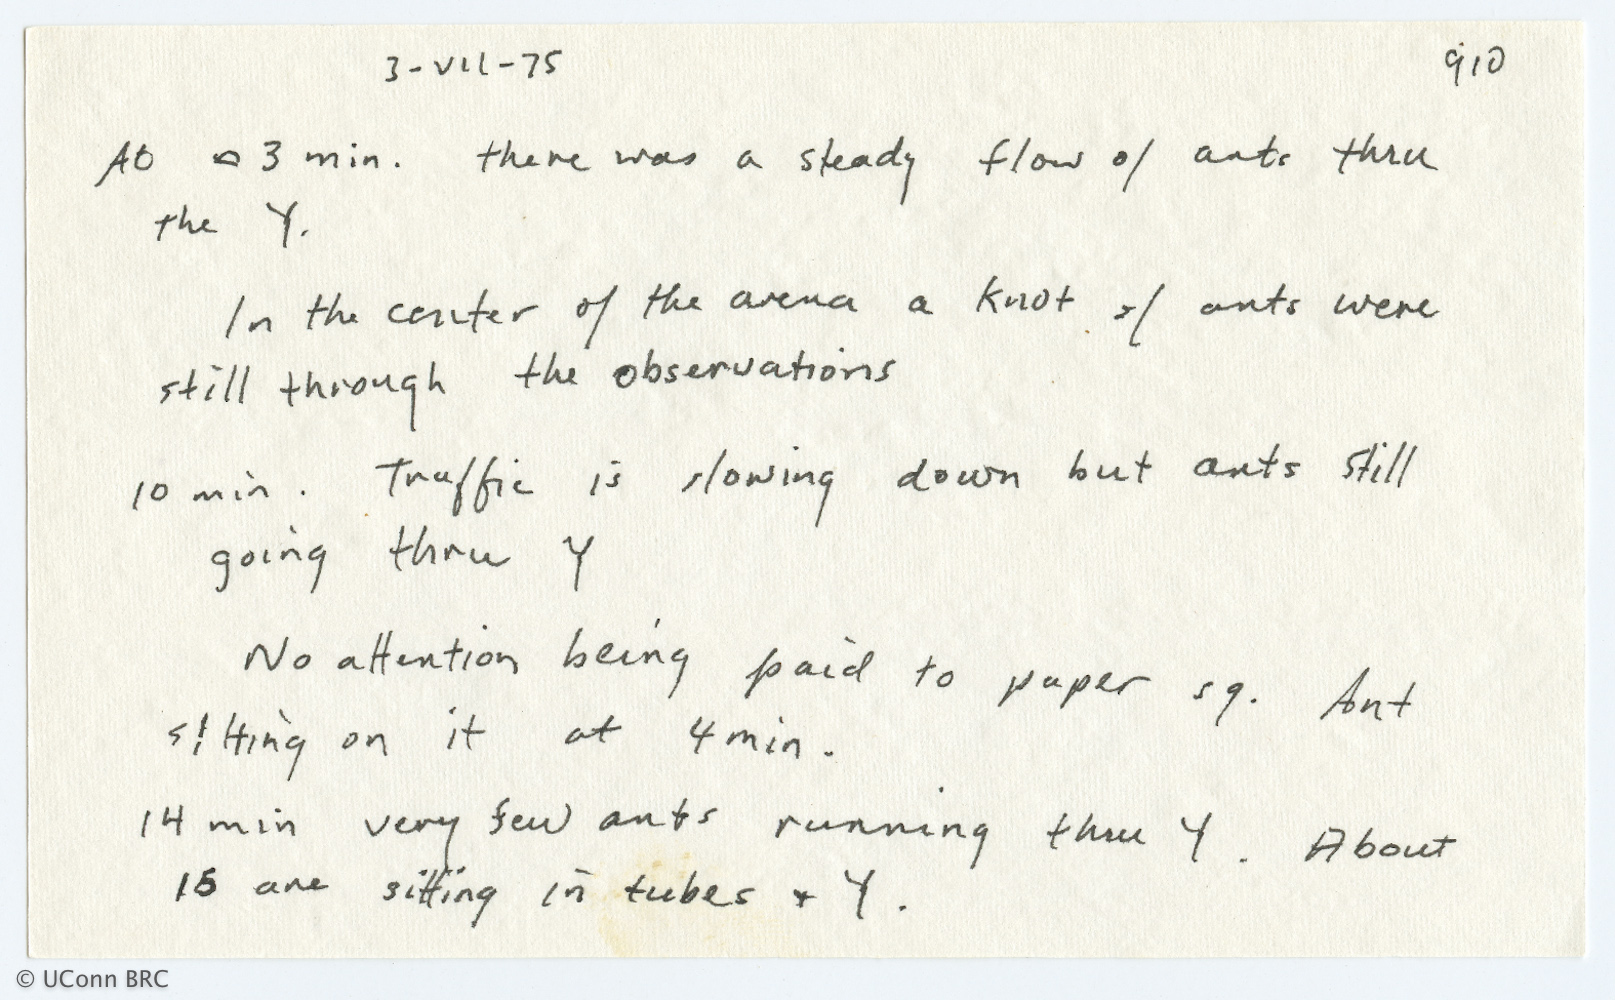 3-VII-75 910
At ~ 3 min. there was a steady flow of ants thru
the Y.
In the center of the arena a knot of ants were
still through the observations
10 min. Traffic is slowing down but ants still
going thru Y
No attention being paid to paper sq. Ant
sitting on it at 4 min.
14 min very few ants running thru Y. About
15 are sitting in tubes + Y.
© UConn BRC